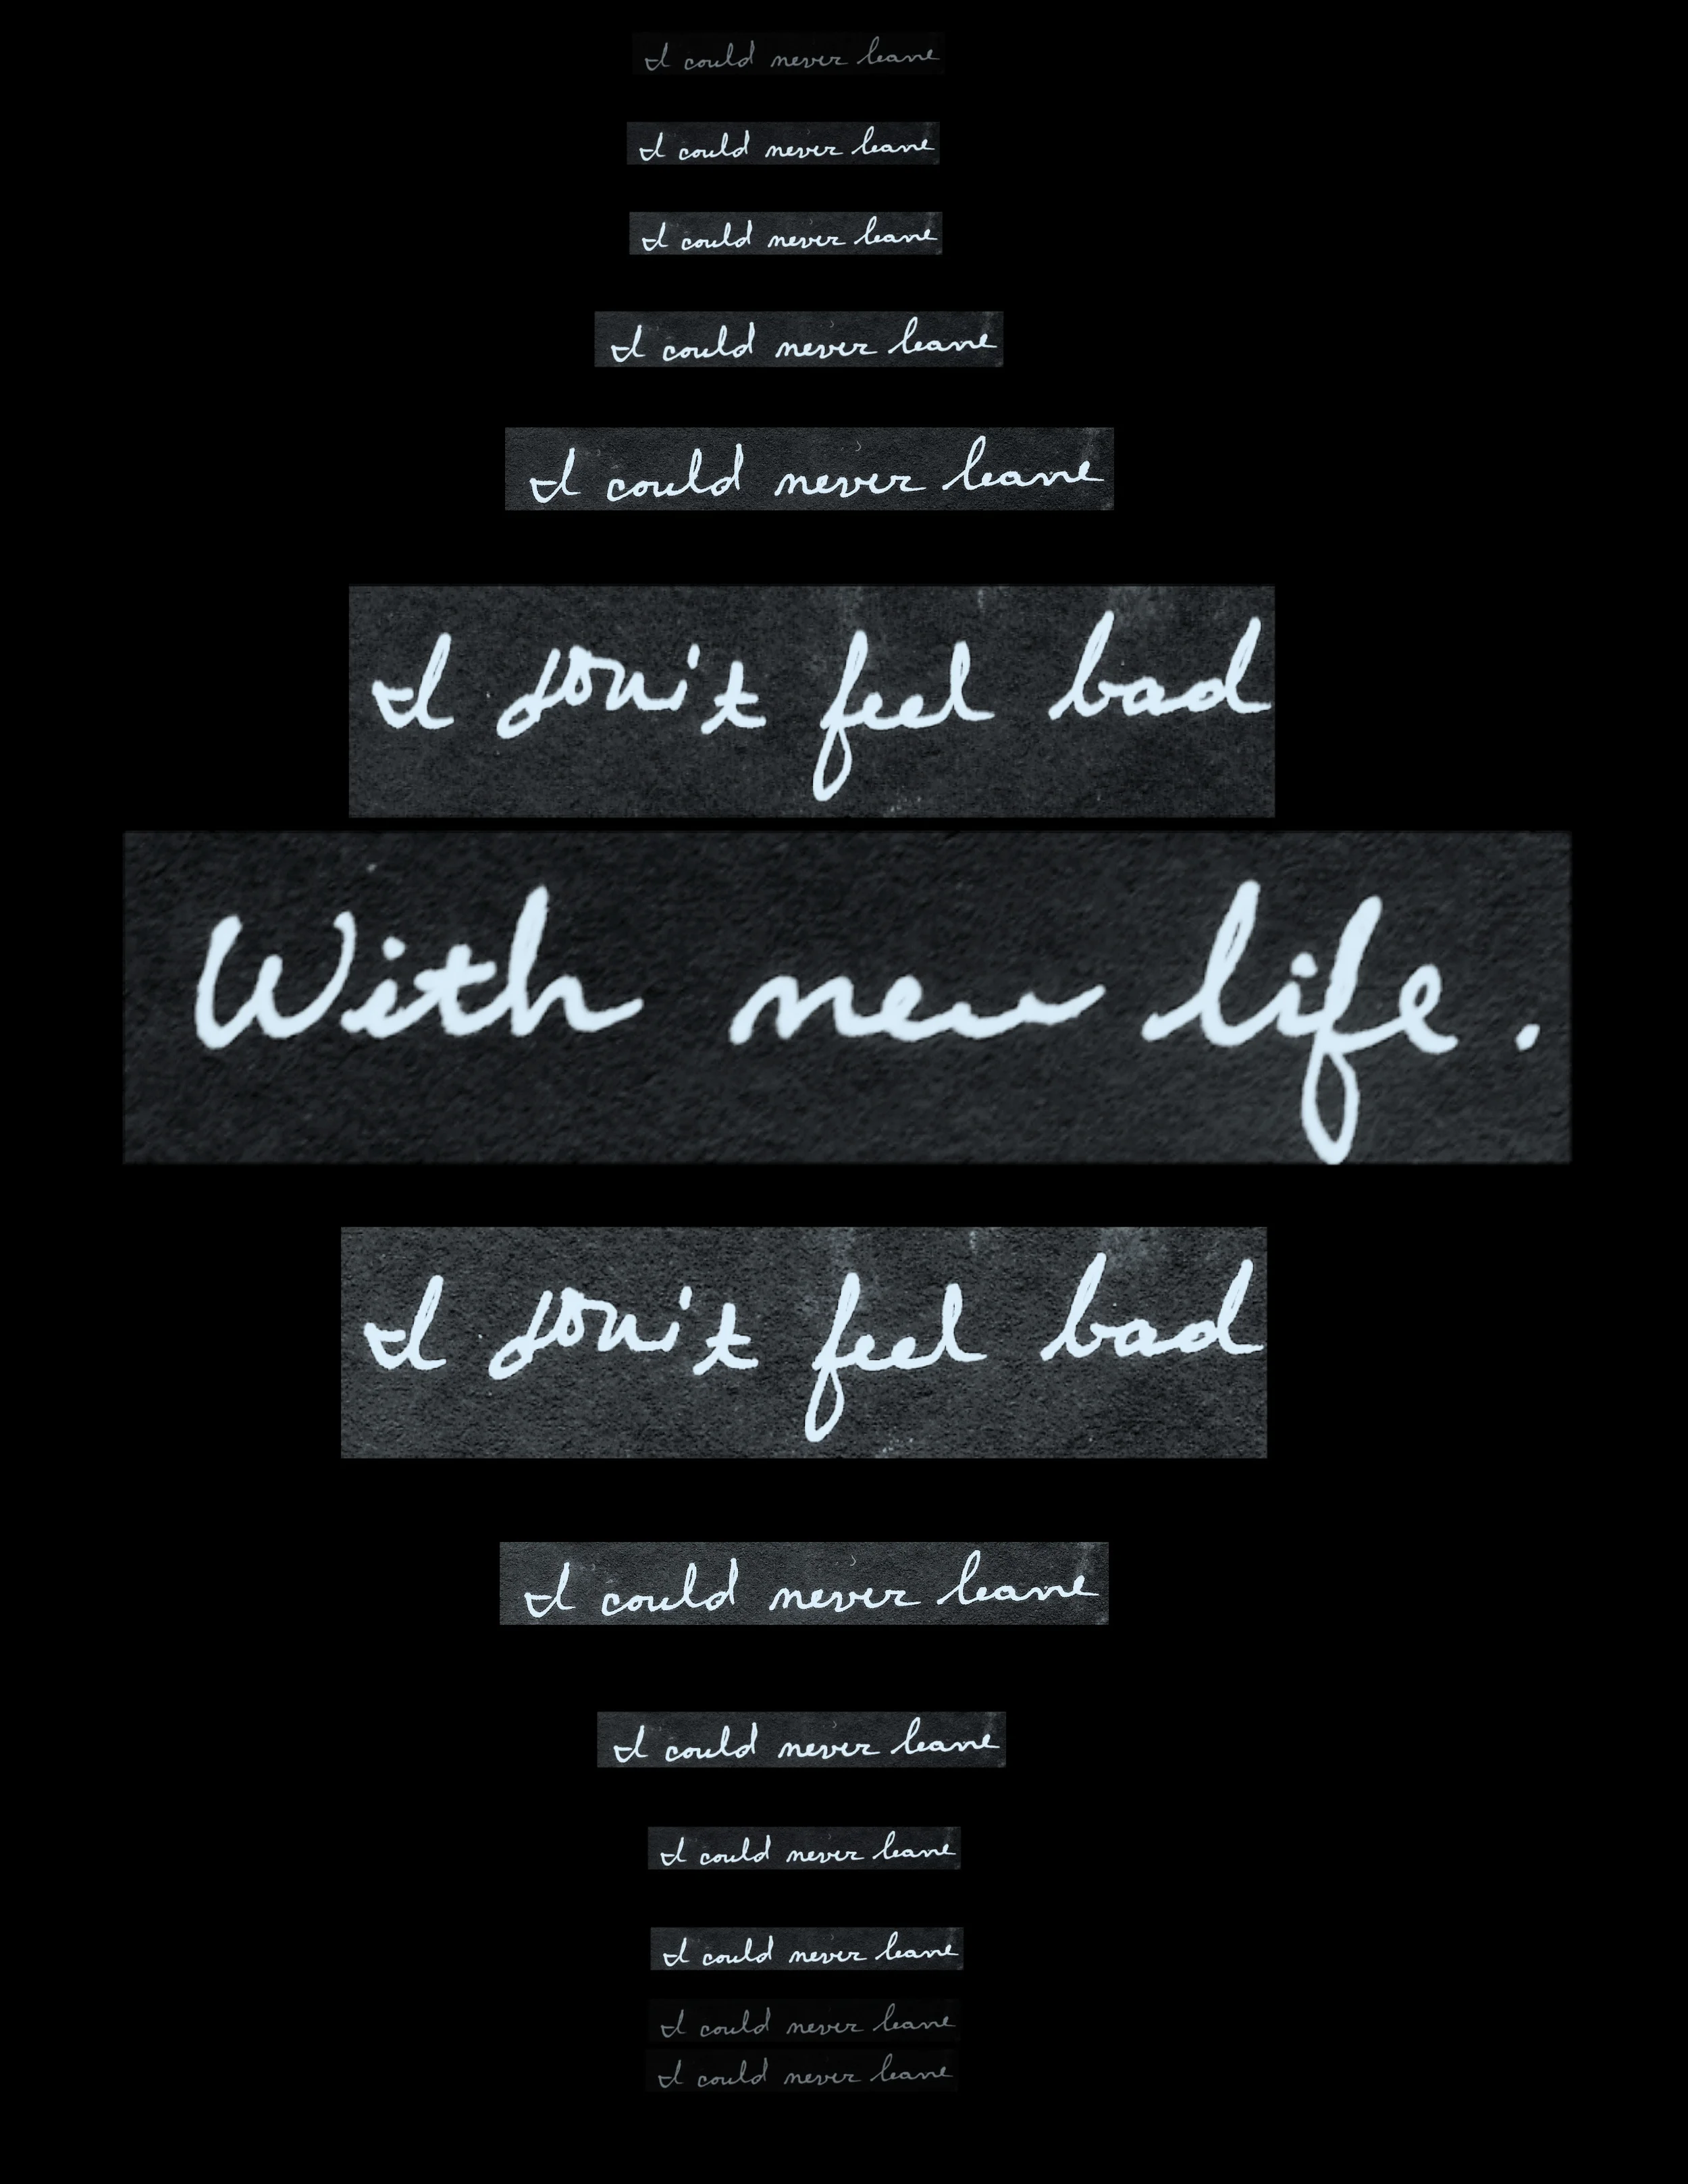 I could never leave
I could never leave
I could never leave
I could never leave
I could never leave
I don't feel bad
With new life.
I don't feel bad
I could never leave
I could never leave
I could never leave
I could never leave
I could never leave
I could never leave